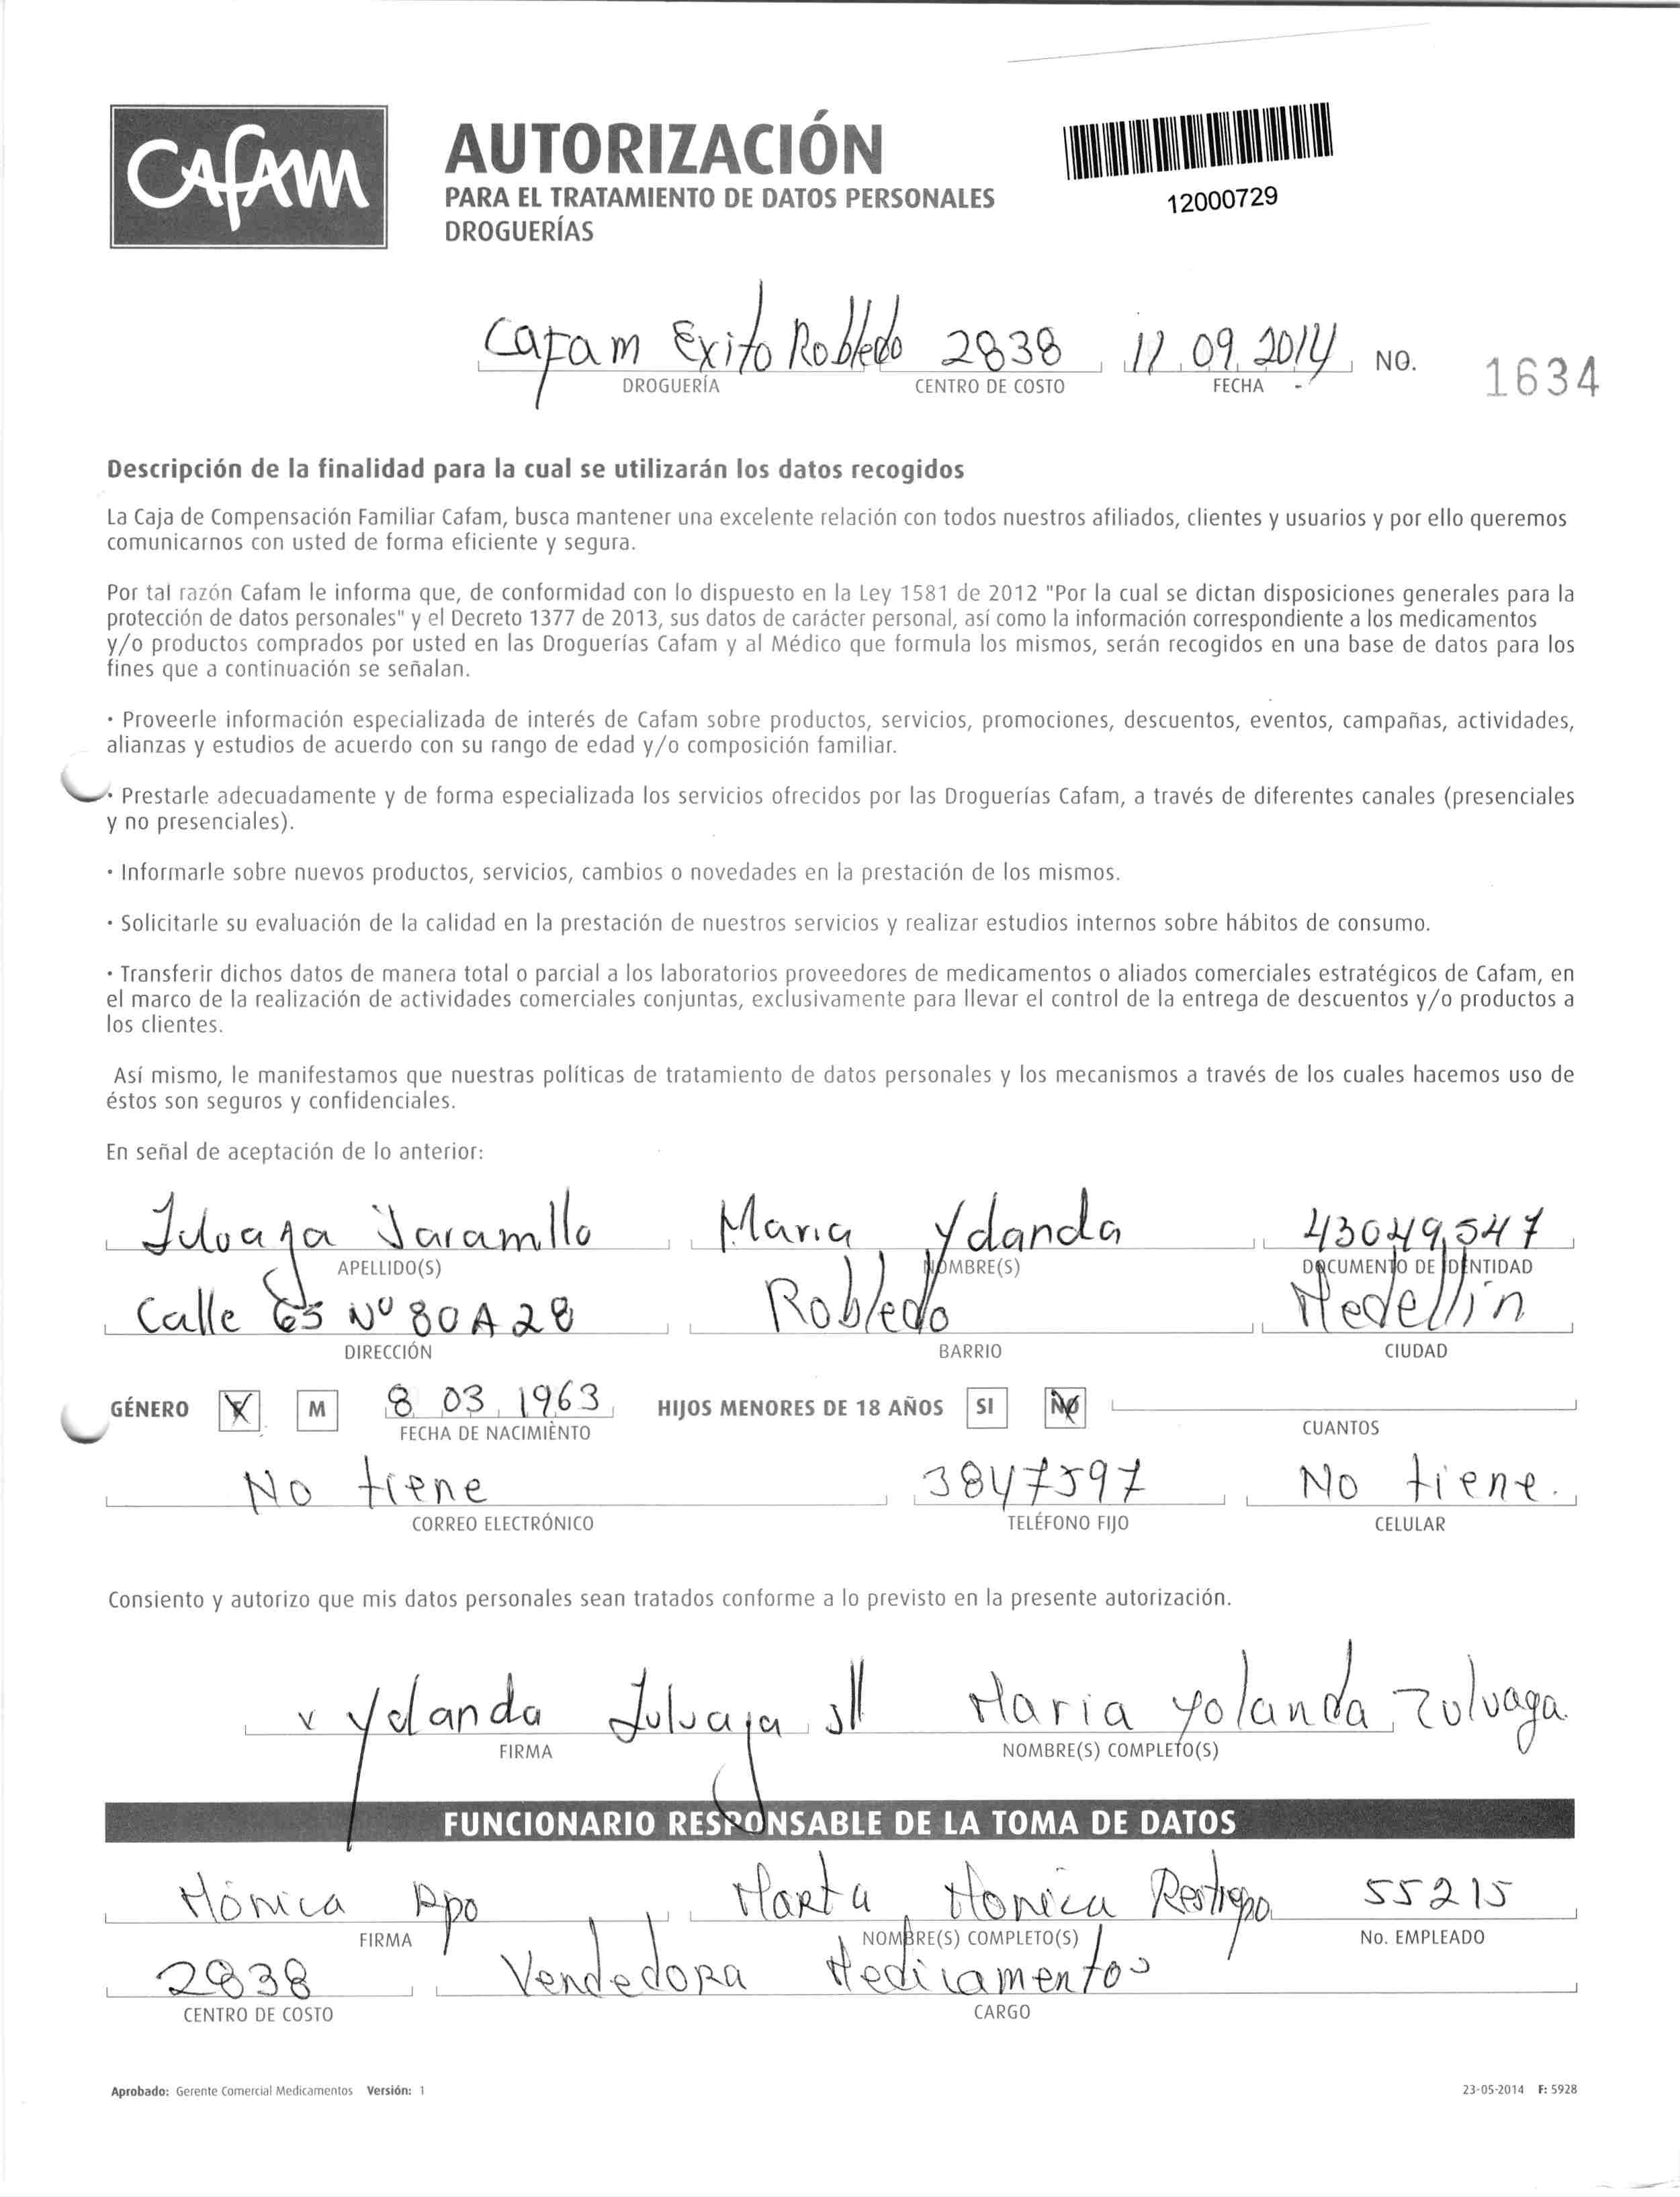 CAFAM
AUTORIZACIÓN
PARA EL TRATAMIENTO DE DATOS PERSONALES
DROGUERÍAS
12000729
Cafam Exito Robledo 2838 11 09 2014 NO. 1634
DROGUERÍA CENTRO DE COSTO FECHA
Descripción de la finalidad para la cual se utilizarán los datos recogidos
La Caja de Compensación Familiar Cafam, busca mantener una excelente relación con todos nuestros afiliados, clientes y usuarios y por ello queremos
comunicarnos con usted de forma eficiente y segura.
Por tal razón Cafam le informa que, de conformidad con lo dispuesto en la Ley 1581 de 2012 "Por la cual se dictan disposiciones generales para la
protección de datos personales" y el Decreto 1377 de 2013, sus datos de carácter personal, así como la información correspondiente a los medicamentos
y/o productos comprados por usted en las Droguerías Cafam y al Médico que formula los mismos, serán recogidos en una base de datos para los
fines que a continuación se señalan.
· Proveerle información especializada de interés de Cafam sobre productos, servicios, promociones, descuentos, eventos, campañas, actividades,
alianzas y estudios de acuerdo con su rango de edad y/o composición familiar.
· Prestarle adecuadamente y de forma especializada los servicios ofrecidos por las Droguerías Cafam, a través de diferentes canales (presenciales
y no presenciales).
· Informarle sobre nuevos productos, servicios, cambios o novedades en la prestación de los mismos.
· Solicitarle su evaluación de la calidad en la prestación de nuestros servicios y realizar estudios internos sobre hábitos de consumo.
· Transferir dichos datos de manera total o parcial a los laboratorios proveedores de medicamentos o aliados comerciales estratégicos de Cafam, en
el marco de la realización de actividades comerciales conjuntas, exclusivamente para llevar el control de la entrega de descuentos y/o productos a
los clientes.
Así mismo, le manifestamos que nuestras políticas de tratamiento de datos personales y los mecanismos a través de los cuales hacemos uso de
éstos son seguros y confidenciales.
En señal de aceptación de lo anterior:
Zuluaga Jaramillo Maria Yolanda 43049547
APELLIDO(S) NOMBRE(S) DOCUMENTO DE IDENTIDAD
Calle 65 Nº 80 A 28 Robledo Medellin
DIRECCIÓN BARRIO CIUDAD
GÉNERO X M 8 03 1963 HIJOS MENORES DE 18 AÑOS SI NO
FECHA DE NACIMIENTO CUANTOS
No tiene 3847597 No tiene.
CORREO ELECTRÓNICO TELÉFONO FIJO CELULAR
Consiento y autorizo que mis datos personales sean tratados conforme a lo previsto en la presente autorización.
x Yolanda Zuluaga Jll Maria yolanda Zuluaga.
FIRMA NOMBRE(S) COMPLETO(S)
FUNCIONARIO RESPONSABLE DE LA TOMA DE DATOS
Mónica Rpo Marta Monica Restrepo 55215
FIRMA NOMBRE(S) COMPLETO(S) No. EMPLEADO
2838 Vendedora Medicamentos
CENTRO DE COSTO CARGO
Aprobado: Gerente Comercial Medicamentos Versión: 1 23-05-2014 F: 5928